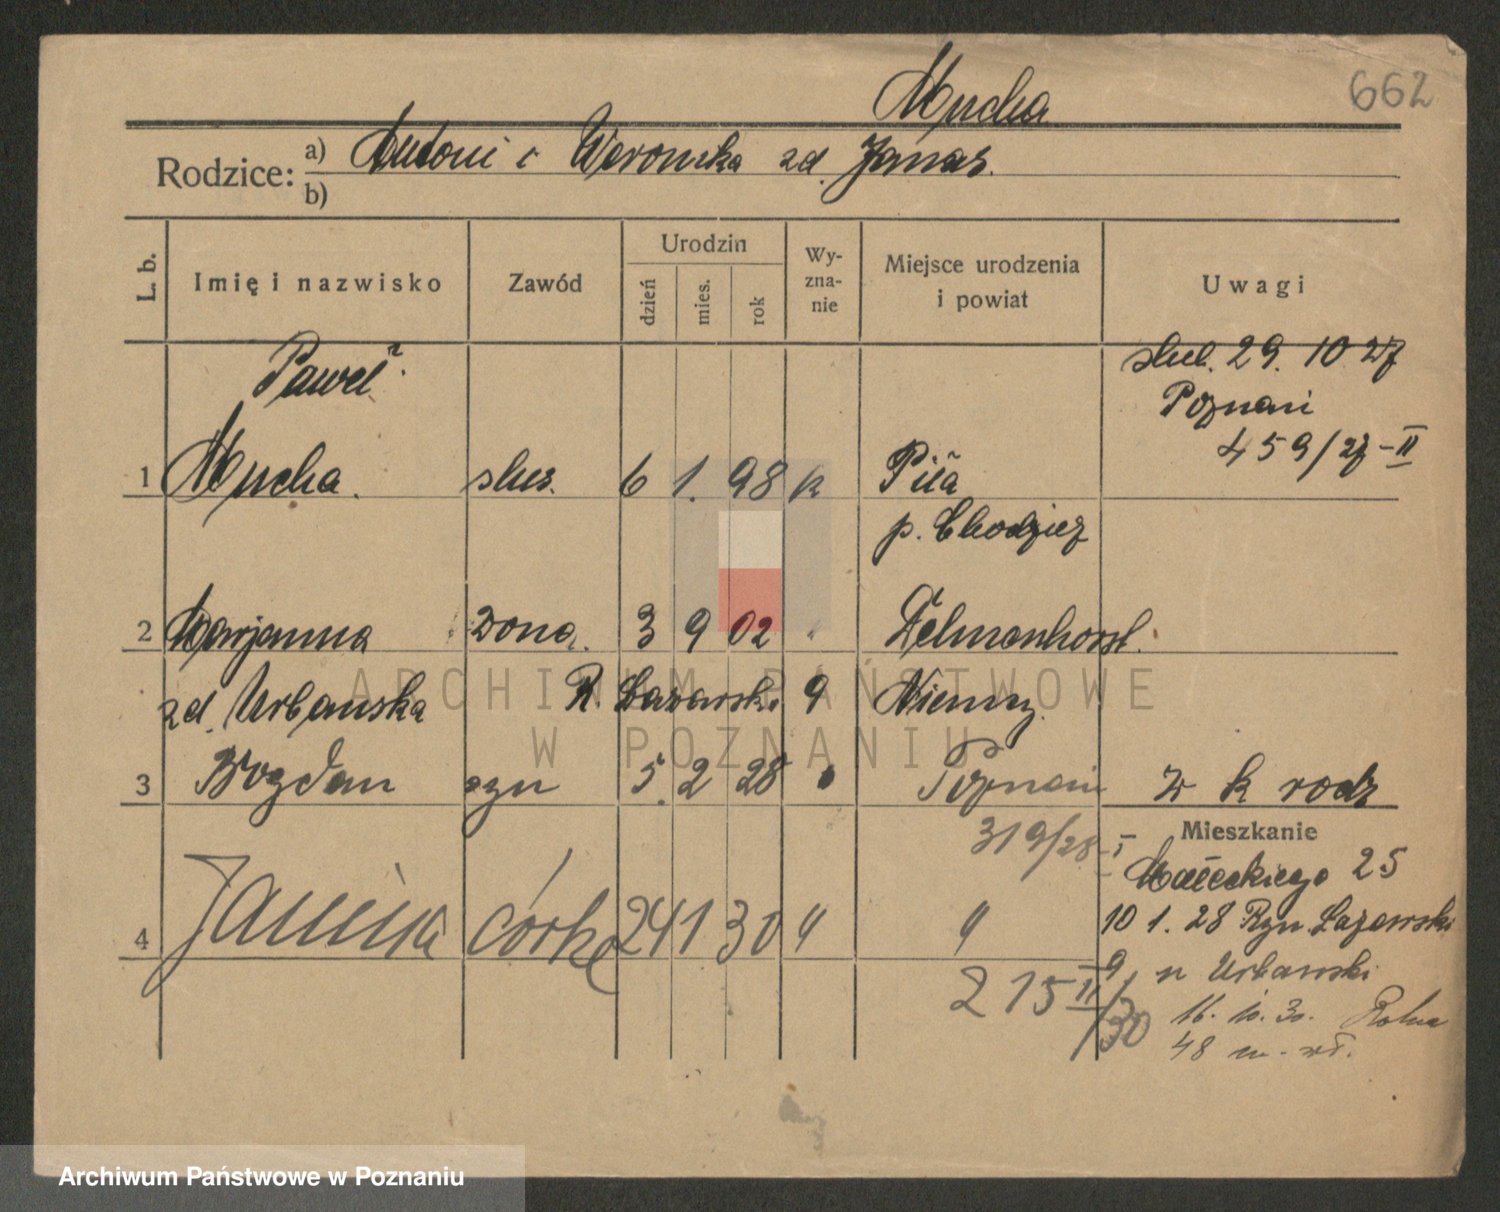 Mucha
662
Rodzice: a) Antoni i Weronika zd. Janas.
b)
L. b.
Imię i nazwisko
Zawód
Urodzin
dzień
mies.
rok
Wy-
zna-
nie
Miejsce urodzenia
i powiat
Uwagi
Paweł
ślub. 29. 10 27
Poznań
459/27-II
1 Mucha. ślus. 6 1. 98 k Piła
p. Chodzież
2 Marjanna żona. 3 9 02 " Delmenhorst.
zd. Urbańska R. Łazarski 9 Niemcy.
3 Bogdan syn 5. 2 28 " Poznań z k rodz
319/28 I
Mieszkanie
Małeckiego 25
4 Janina córka 24 1 30 " "
10 1. 28 Ryn. Łazarski
9 u Urbański
215 II/30
16. 10. 30. Rolna
48 m. wł.
ARCHIWUM PAŃSTWOWE
W POZNANIU
Archiwum Państwowe w Poznaniu